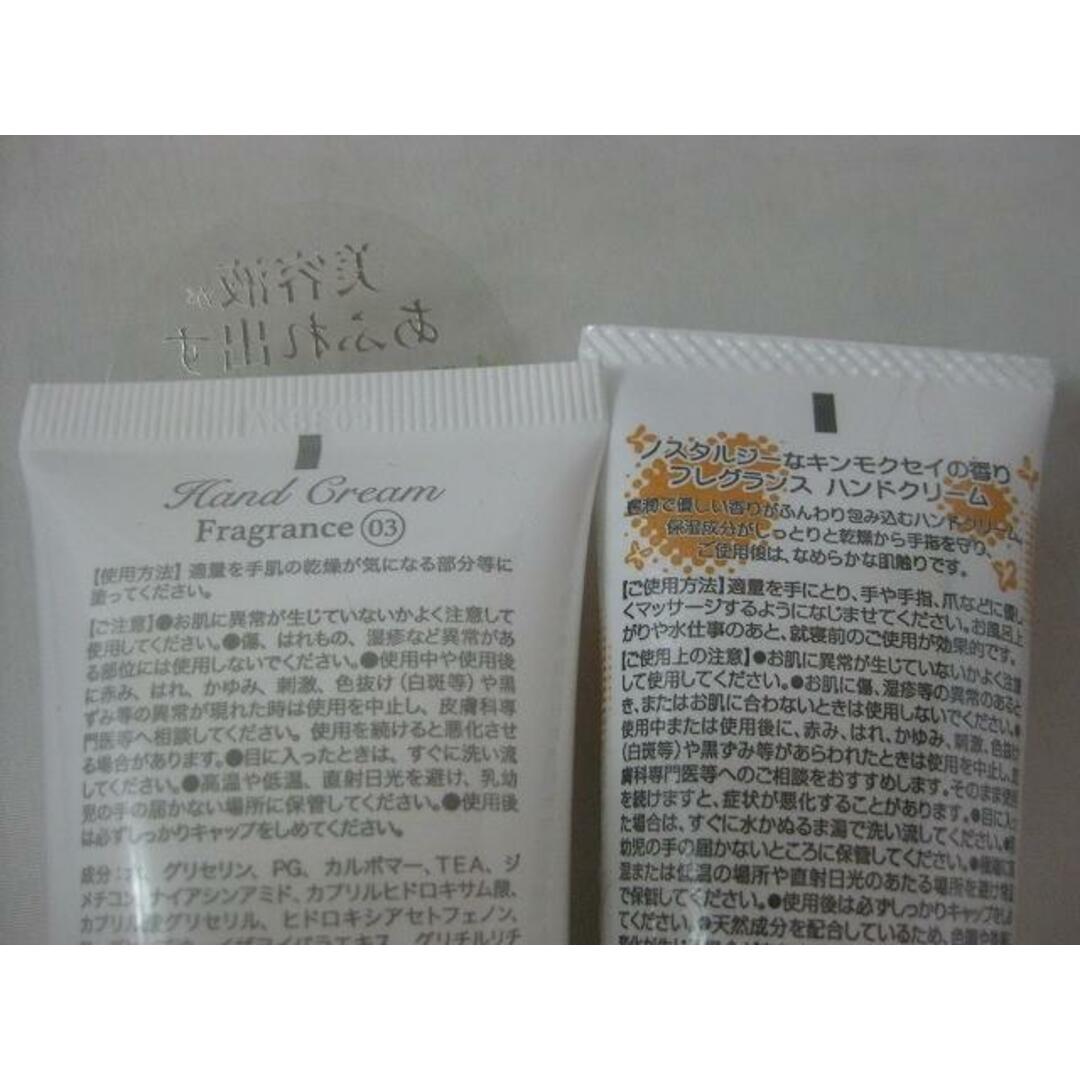 美容液が
あふれ出す
Hand Cream
Fragrance 03
【使用方法】適量を手肌の乾燥が気になる部分等に
塗ってください。
【ご注意】●お肌に異常が生じていないかよく注意して
使用してください。●傷、はれもの、湿疹など異常があ
る部位には使用しないでください。●使用中や使用後
に赤み、はれ、かゆみ、刺激、色抜け(白斑等)や黒
ずみ等の異常が現れた時は使用を中止し、皮膚科専
門医等へ相談してください。使用を続けると悪化させ
る場合があります。●目に入ったときは、すぐに洗い流
してください。●高温や低温、直射日光を避け、乳幼
児の手の届かない場所に保管してください。●使用後
は必ずしっかりキャップをしめてください。
成分:水、グリセリン、PG、カルボマー、TEA、ジ
メチコン、ナイアシンアミド、カプリルヒドロキサム酸、
カプリル酸グリセリル、ヒドロキシアセトフェノン、
イザヨイバラエキス、グリチルリチ
ノスタルジーなキンモクセイの香り
フレグランス ハンドクリーム
豊潤で優しい香りがふんわり包み込むハンドクリーム。
保湿成分がしっとりと乾燥から手指を守り、
ご使用後は、なめらかな肌触りです。
【ご使用方法】適量を手にとり、手や手指、爪などに優し
くマッサージするようになじませてください。お風呂上
がりや水仕事のあと、就寝前のご使用が効果的です。
【ご使用上の注意】●お肌に異常が生じていないかよく注意
して使用してください。●お肌に傷、湿疹等の異常のあると
き、またはお肌に合わないときは使用しないでください。●
使用中または使用後に、赤み、はれ、かゆみ、刺激、色抜け
(白斑等)や黒ずみ等があらわれたときは使用を中止し、皮
膚科専門医等へのご相談をおすすめします。そのまま使用
を続けますと、症状が悪化することがあります。●目に入っ
た場合は、すぐに水かぬるま湯で洗い流してください。●
幼児の手の届かないところに保管してください。●極端に高
温または低温の場所や直射日光のあたる場所を避け
で保管してください。●使用後は必ずしっかりキャップをしめ
てください。●天然成分を配合しているため、色調や